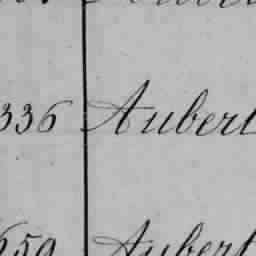 336 Aubert
659 Aubert